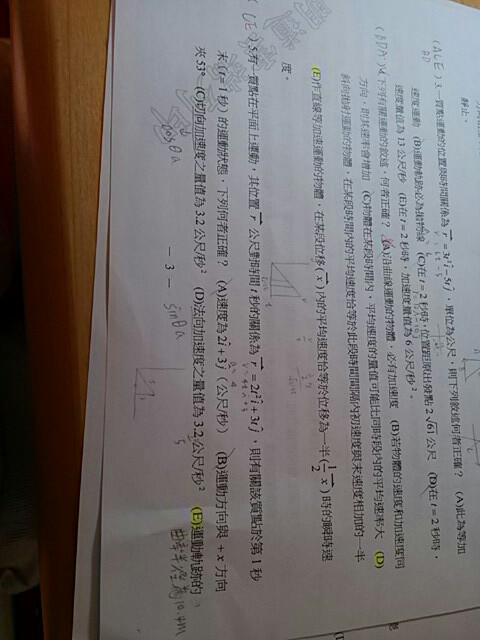 靜止。
(ACE) 3.一質點運動的位置與時間關係為 r = 3t²i - 5tj,單位為公尺,則下列敘述何者正確? (A)此為等加
BD
速度運動 (B)運動軌跡必為拋物線 (C)在 t = 2 秒時,位置距原出發點 2√61 公尺 (D)在 t = 2 秒時,
速度量值為 13 公尺/秒 (E)在 t = 2 秒時,加速度量值為 6 公尺/秒²。
4.下列有關運動的敘述,何者正確? (A)沿曲線運動的物體,必有加速度 (B)若物體的速度和加速度同
方向,則其速率會增加 (C)物體在某段時間內,平均速度的量值可能比同時段內的平均速率大 (D)
斜向拋射運動的物體,在某段時間內的平均速度恰等於此段時間間隔內初速度與末速度相加的一半
(E)作直線等加速運動的物體,在某段位移(x)內的平均速度恰等於位移為一半(1/2 x)時的瞬時速
度。
(CE) 5.有一質點在平面上運動,其位置 r 公尺對時間 t 秒的關係為 r = 2t²i + 3tj,則有關該質點於第 1 秒
末(t = 1 秒)的運動狀態,下列何者正確? (A)速度為 2i + 3j(公尺/秒) (B)運動方向與 +x 方向
夾 53° (C)切向加速度之量值為 3.2 公尺/秒² (D)法向加速度之量值為 3.2 公尺/秒² (E)運動軌跡的
曲率半徑為10.4M
cosθa
sinθa
- 3 -